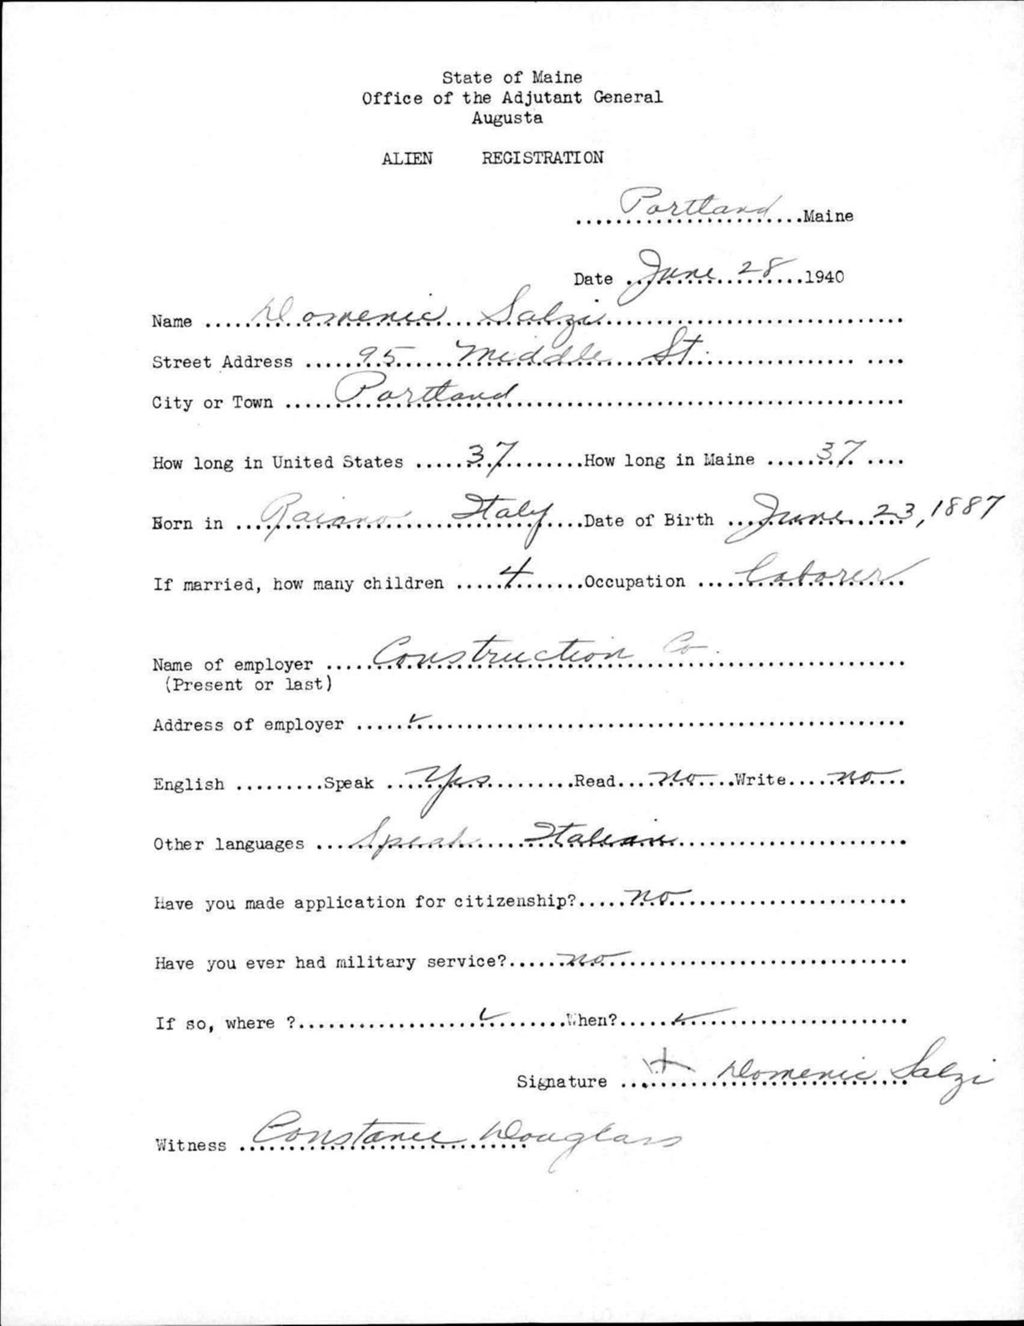 State of Maine
Office of the Adjutant General
Augusta
ALIEN REGISTRATION
Portland Maine
Date June 28 1940
Name Domenic Salzi
Street Address 95 Middle St.
City or Town Portland
How long in United States 37 How long in Maine 37
Born in Raiano Italy Date of Birth June 23, 1887
If married, how many children 4 Occupation Laborer
Name of employer Construction Co.
(Present or last)
Address of employer ✓
English Speak Yes Read no Write no
Other languages Speak Italian
Have you made application for citizenship? no
Have you ever had military service? no
If so, where ? ✓ When? ✓
Signature X Domenic Salzi
Witness Constance Douglass